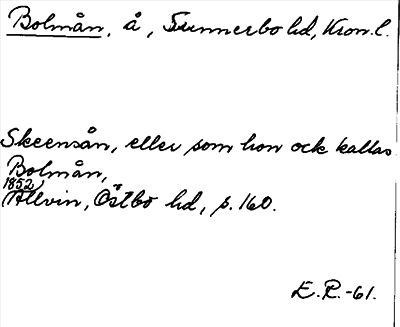 Bolmån, å, Sunnerbo hd, Kron. l.
Skeensån, eller som hon ock kallas
Bolmån,
1852
Allvin, Östbo hd, s. 160.
E. P. -61.